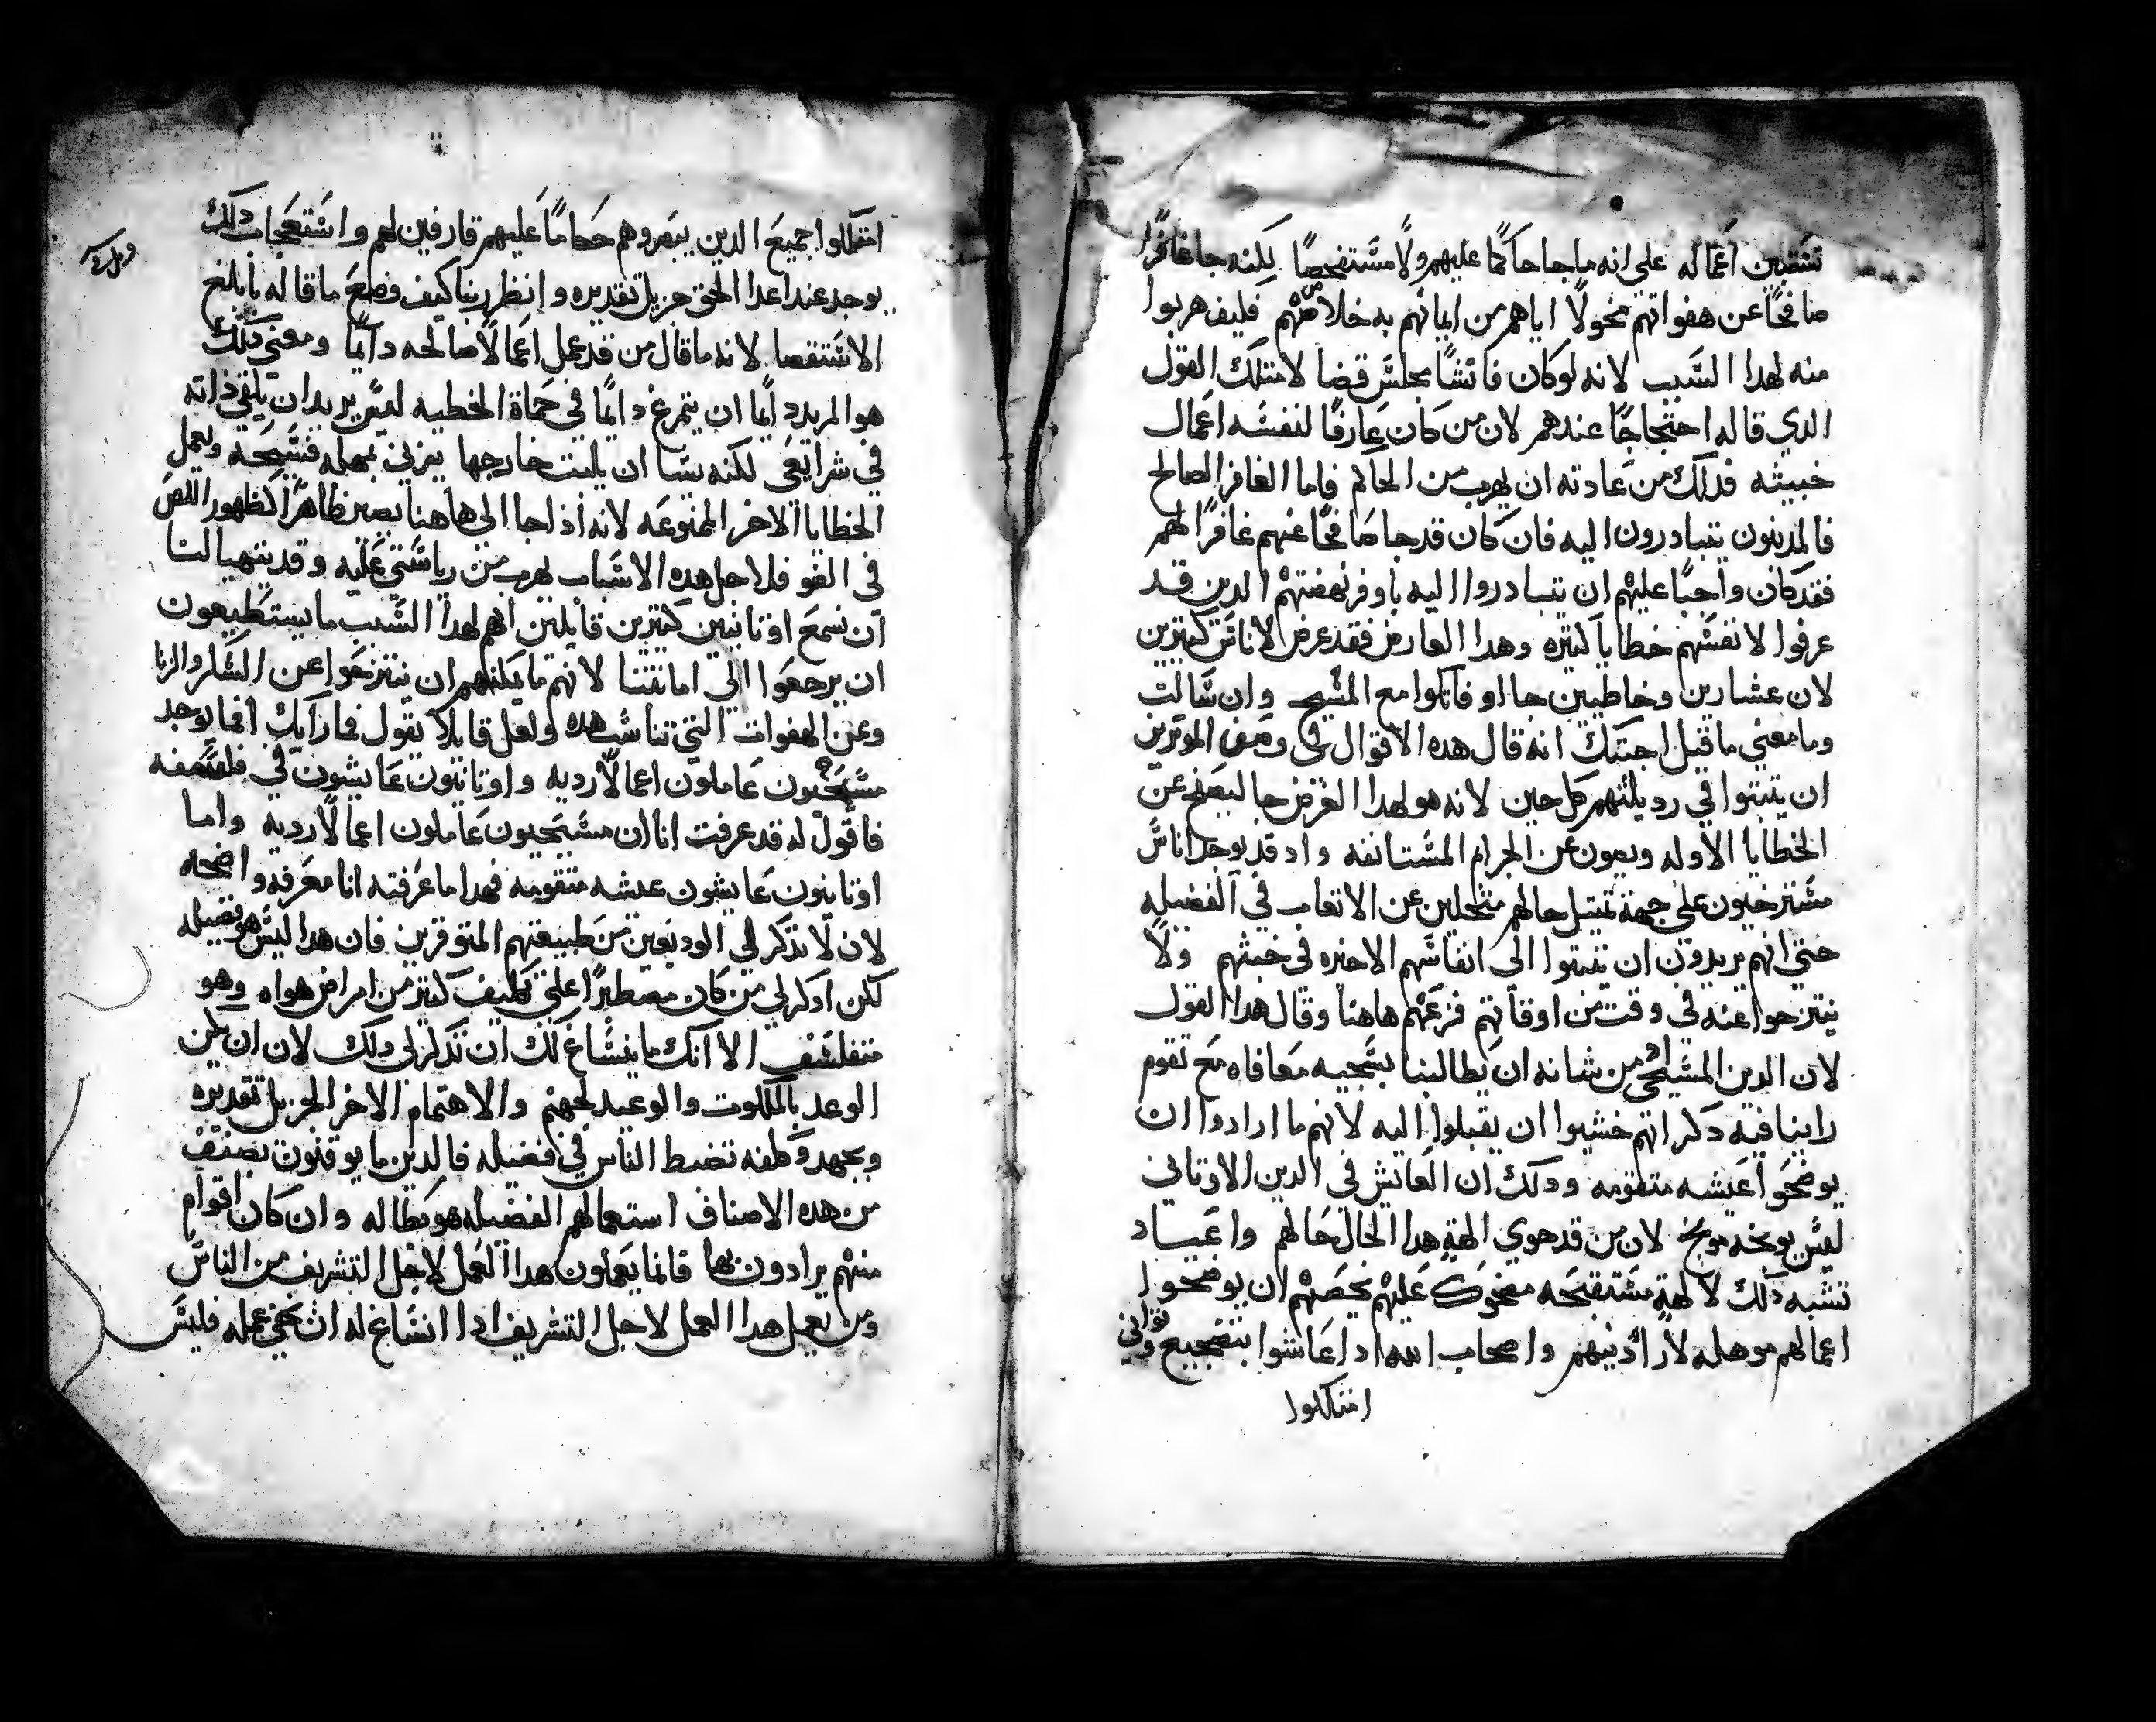 تستبين اعماله على انه ما جا حاكمًا عليهم ولا مستفحصًا لكنه جا غافرًا
صافحًا عن هفواتهم مخولًا اياهم من ايمانهم به خلاصهم فليف هربوا
منه لهدا السبب لانه لو كان فاتشًا مجلس قضا لامتلك القول
الدي قاله احتجاجًا عندهم لان من كان عارفًا لنفسه اعمال
خبيثه فدلك من عادته ان يهرب من الحاكم فاما الغافر الصالح
فالمدنبون يتبادرون اليه فان كان قد جا صافحًا عنهم غافرًا لهم
فقد كان واجبًا عليهم ان يتبادروا اليه باوفر نهضتهم الدين قد
عرفوا لانفسهم خطايا كثيره وهدا العارض فقد عرض لاناس كثيرين
لان عشارين وخاطيين جااو فاتكوا مع المسيح وان سالت
وما معني ما قيل اجبتك انه قال هده الاقوال في وصف الموثرين
ان يثبتوا في رديلتهم كل حين لانه هو لهدا الغرض جا ليصفح عن
الخطايا الاوله ويصون عن الجرام المستانفه واد قد يوجد اناس
مسترخيون على جهة تمثل حالهم متخلين عن الاتعاب في الفضيله
حتي انهم يريدون ان يثبتوا الى انفاسهم الاخيره في خبثهم ولا
ينتزحوا عنه في وقت من اوقاتهم فزعمهم هاهنا وقال هدا القول
لان الدين المسيحي اد من شانه ان يطالبنا بسجيه معافاه مع تقوم
راينا فيه دكر انهم خشيوا ان يقبلوا اليه لانهم ما ارادوا ان
يوضحوا عيشه متقومه ودلك ان العايش في الدين الاوتاني
ليس يوبخه موبخ لان من قد حوي الهة هدا الحال حالهم واعياد
تشبه دلك لالهة مستقبحه مضحوك عليهم يخصهم ان يوضحوا
اعمالهم موهله لارا دينهم واصحاب الله ادا عاشوا بتضجيع وتواني
امتثلوا
امتثلوا جميع الدين يبصروهم حكامًا عليهم قارفين لهم واستعجاب دلك
يوجد عند اعدا الحق جزيل تقديره وانظر ربنا كيف وضع ما قاله بابلغ
الاستقصا لانه ما قال من قد عمل اعمالًا صالحه دايمًا ومعني دلك
هو المريد دايمًا ان يتمرغ دايمًا في حماة الخطيه ليس يريد ان يلقي ذاته
في شرايعي لكنه يشا ان يلبث خارجها يزني بمهله فسيحه ويعمل
الخطايا الاخر الممنوعه لانه اذا جا الى هاهنا يصير ظاهرًا كظهور اللص
في الضو فلاجل هده الاسباب يهرب من رياستي عليه وقد يتهيا لنا
ان نسمع اوتانيين كثيرين قايلين انهم لهدا السبب ما يستطيعون
ان يرجعوا الى امانتنا لانهم ما يمكنهم ان ينتزحوا عن السكر والزنا
وعن الهفوات التي تناسب هده ولعل قايلا يقول فما رايك افما يوجد
مسيحيون عاملون اعمالًا رديه واوتانيون عايشون في فلسفه
فاقول له قد عرفت انا ان مسيحيون عاملون اعمالًا رديه واما
اوتانيون عايشون عيشه متقومه فهدا ما عرفته انا معرفه واضحه
لان لا تذكر لي الوديعين من طبيعتهم المتوقرين فان هدا ليس هو فضيله
لكن ادكر لي من كان مضطرًا على تكليف كثير من امراض هواه وهو
متفلسف الا انك ما ينساغ لك ان تذكر لي دلك لان ان يكن
الوعد بالملكوت والوعيد لجهنم والاهتمام الاخر الجزيل تقديره
وبجهد وكلفه تضبط الناس في فضيله فالدين ما يوقنون بصنف
من هده الاصناف استعمالهم الفضيله هو بطاله وان كان اقوام
منهم يرادون بها فانما يعملون هدا العمل لاجل التشريف من الناس
ومن يعمل هدا العمل لاجل التشريف ادا انساغ له ان يخفي عمله فليس